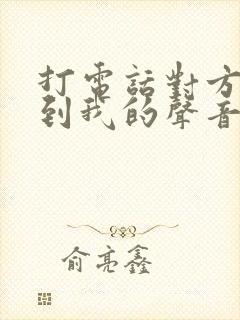 打電話對方
到我的聲音
俞亮鑫